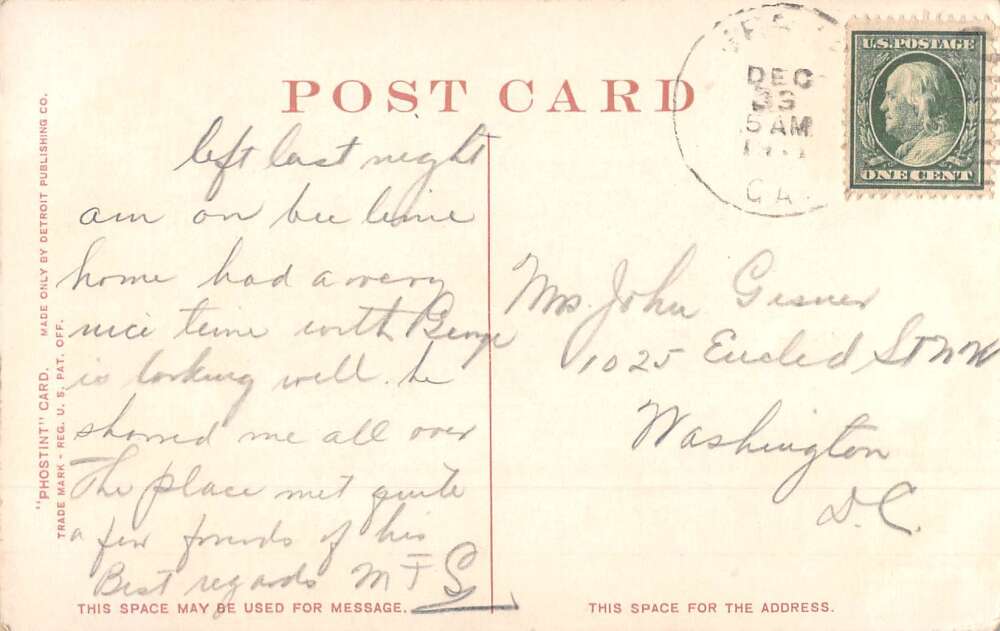 POST CARD
U.S. POSTAGE
ONE CENT
DEC
5 AM
CA
left last night
am on bee line
home had a very
nice time with George
is looking well. he
showed me all over
The place met quite
a few friends of his
Best regards M F S
Mrs. John Gesner
1025 Euclid St NW
Washington
D.C.
"PHOSTINT" CARD. MADE ONLY BY DETROIT PUBLISHING CO.
TRADE MARK - REG. U. S. PAT. OFF.
THIS SPACE MAY BE USED FOR MESSAGE.
THIS SPACE FOR THE ADDRESS.